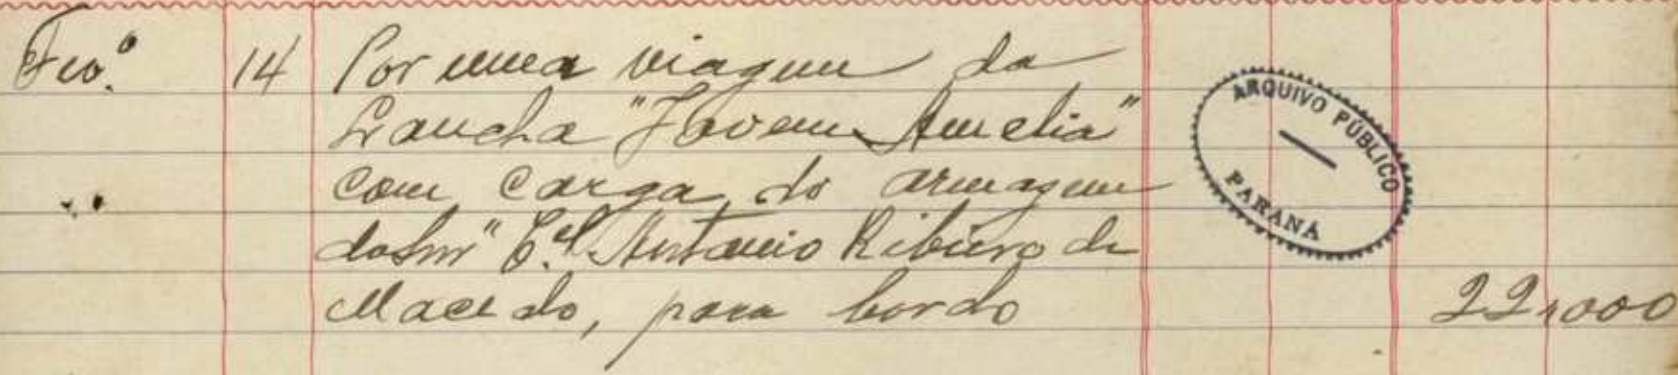 Fevº. 14 Por uma viagem da
Lancha "Jovem Amelia"
com carga do armazem
do Snr" Cel. Antonio Ribeiro de
Macedo, para bordo 22,000
ARQUIVO PÚBLICO
PARANÁ